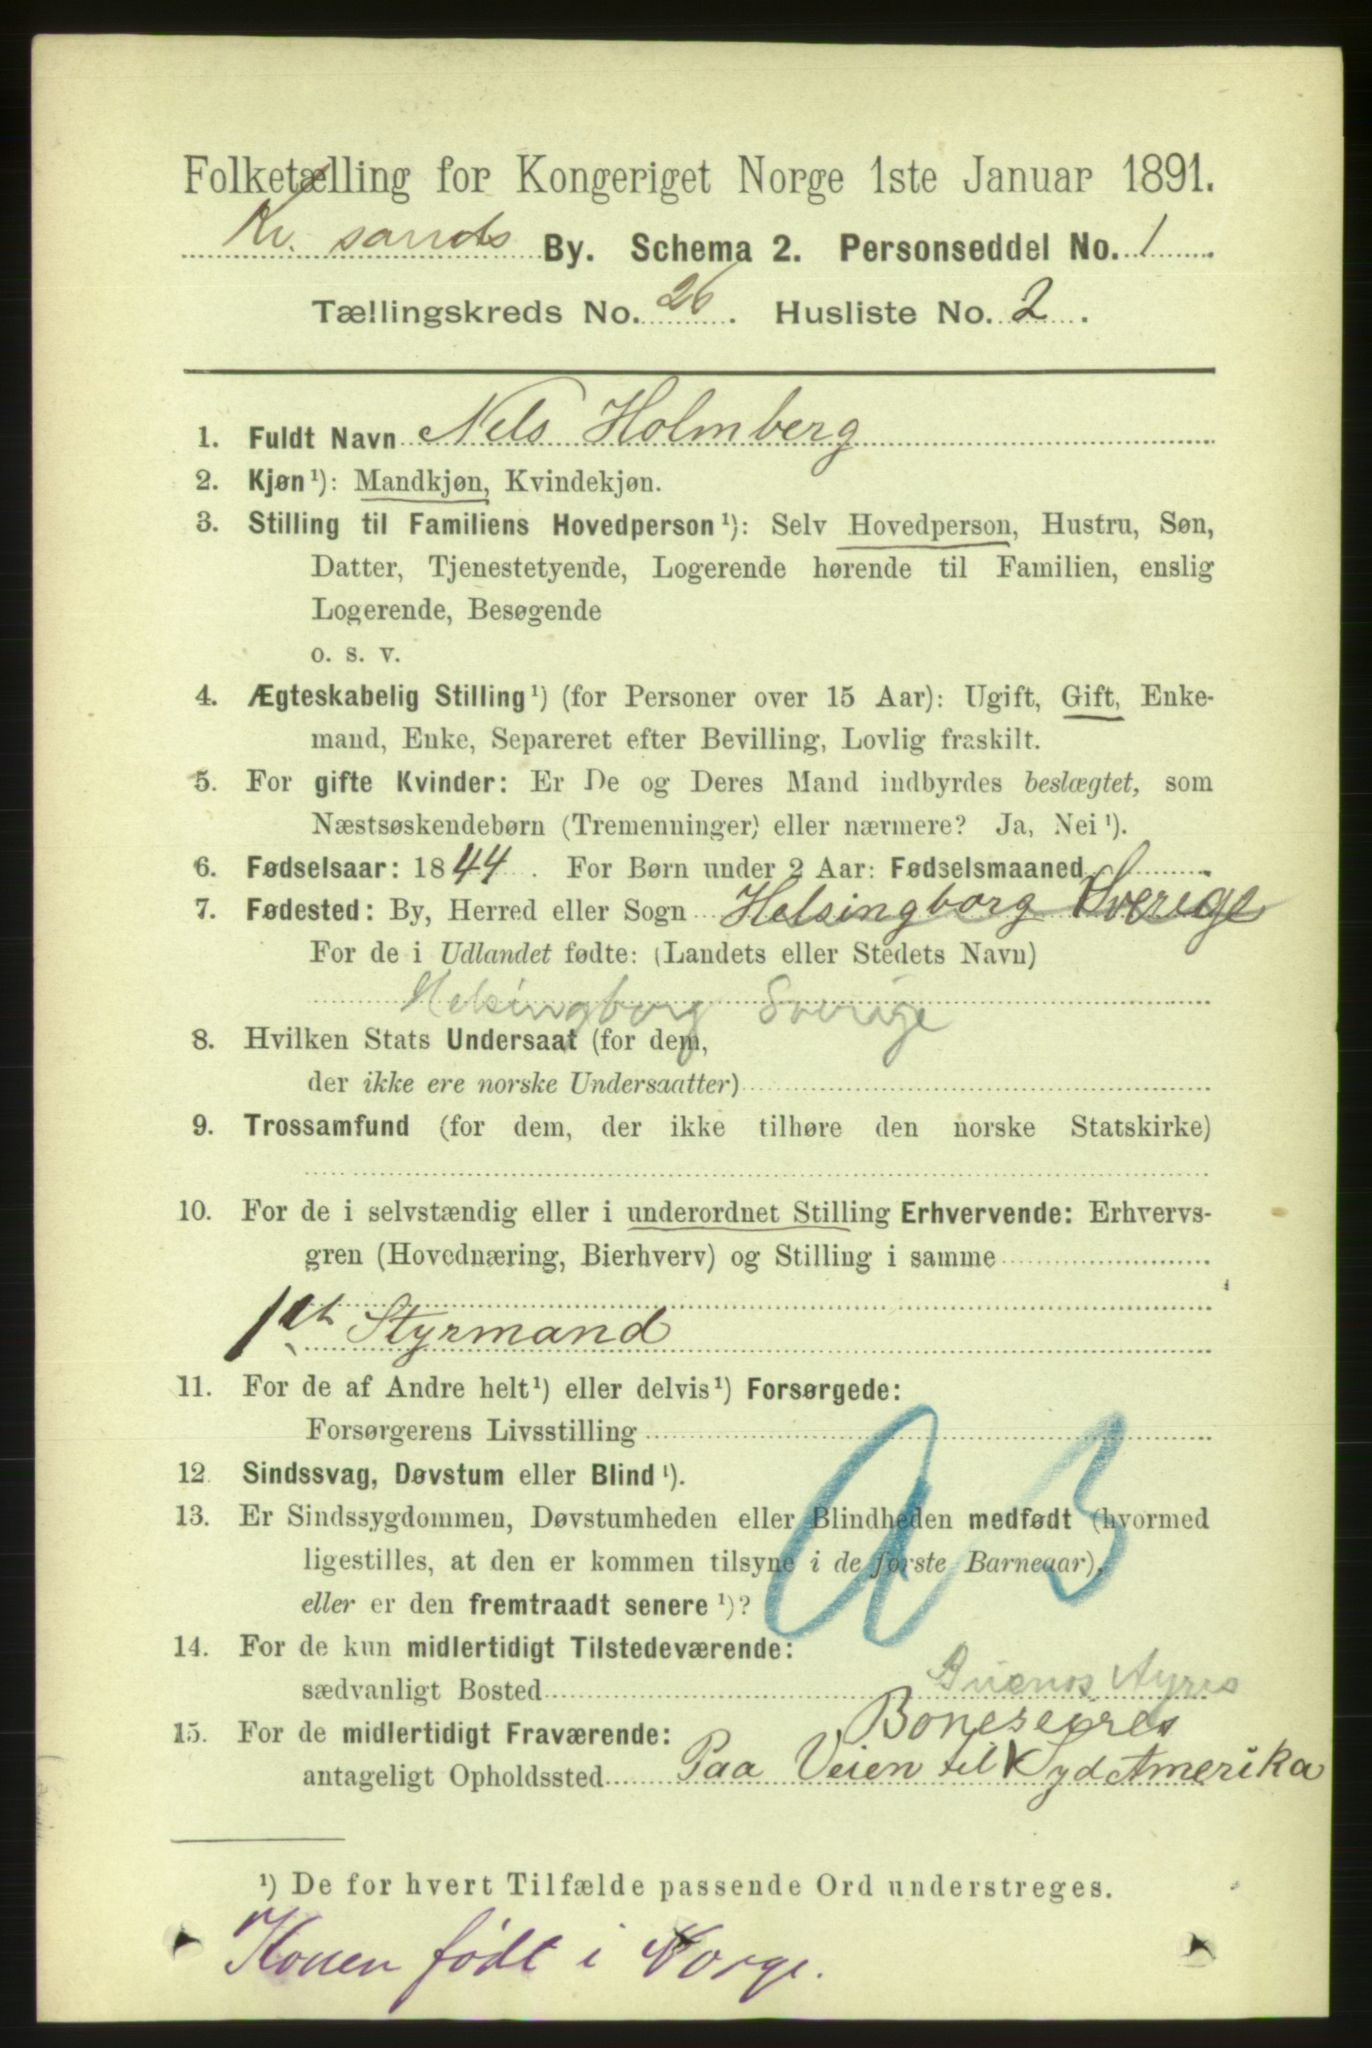 Folketælling for Kongeriget Norge 1ste Januar 1891.
Kr. sands By. Schema 2. Personseddel No. 1
Tællingskreds No. 26. Husliste No. 2.
1. Fuldt Navn Nels Holmberg
2. Kjøn¹): Mandkjøn, Kvindekjøn.
3. Stilling til Familiens Hovedperson¹): Selv Hovedperson, Hustru, Søn,
Datter, Tjenestetyende, Logerende hørende til Familien, enslig
Logerende, Besøgende
o. s. v.
4. Ægteskabelig Stilling¹) (for Personer over 15 Aar): Ugift, Gift, Enke-
mand, Enke, Separeret efter Bevilling, Lovlig fraskilt.
5. For gifte Kvinder: Er De og Deres Mand indbyrdes beslægtet, som
Næstsøskendebørn (Tremenninger) eller nærmere? Ja, Nei¹).
6. Fødselsaar: 1844. For Børn under 2 Aar: Fødselsmaaned
7. Fødested: By, Herred eller Sogn Helsingborg Sverige
For de i Udlandet fødte: (Landets eller Stedets Navn)
Helsingborg Sverige
8. Hvilken Stats Undersaat (for dem,
der ikke ere norske Undersaatter)
9. Trossamfund (for dem, der ikke tilhøre den norske Statskirke)
10. For de i selvstændig eller i underordnet Stilling Erhvervende: Erhvervs-
gren (Hovednæring, Bierhverv) og Stilling i samme
1st Styrmand
11. For de af Andre helt¹) eller delvis¹) Forsørgede:
Forsørgerens Livsstilling
12 Sindssvag, Døvstum eller Blind¹).
13. Er Sindssygdommen, Døvstumheden eller Blindheden medfødt (hvormed
ligestilles, at den er kommen tilsyne i de første Barneaar),
eller er den fremtraadt senere¹)?
14. For de kun midlertidigt Tilstedeværende:
sædvanligt Bosted
Buenos Ayres
Bonesegres
15. For de midlertidigt Fraværende:
antageligt Opholdssted Paa Veien til Syd Amerika
¹) De for hvert Tilfælde passende Ord understreges.
Konen født i Norge.